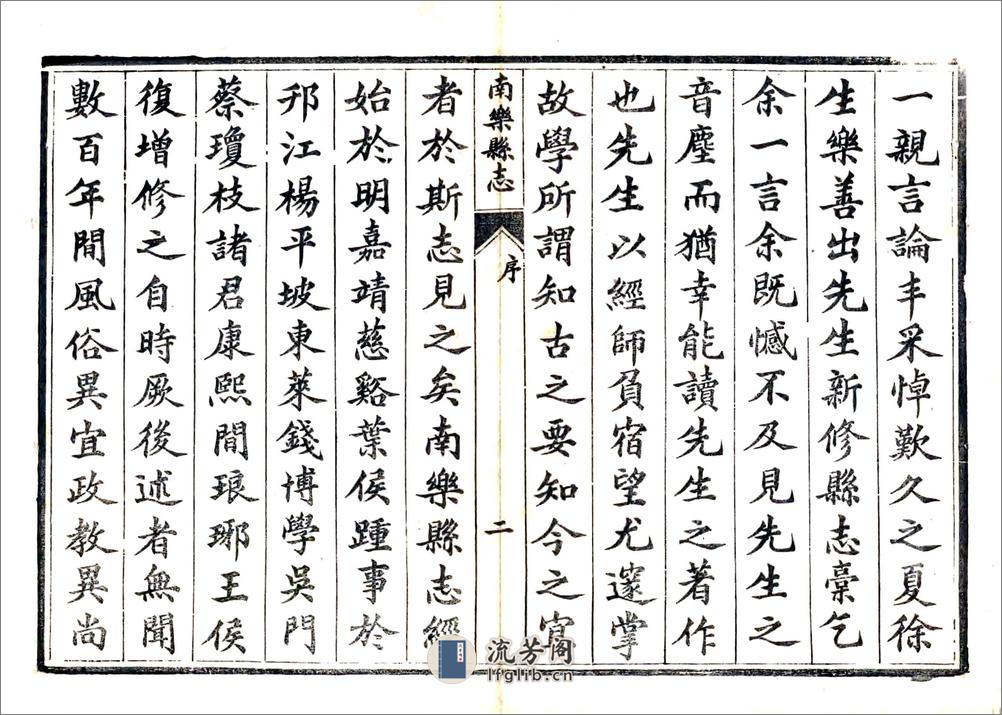 一親言論丰采悼歎久之夏徐
生樂善出先生新修縣志稾乞
余一言余既憾不及見先生之
音塵而猶幸能讀先生之著作
也先生以經師負宿望尤邃掌
故學所謂知古之要知今之宜
南樂縣志
序
二
者於斯志見之矣南樂縣志經
始於明嘉靖慈谿葉侯踵事於
邗江楊平坡東萊錢博學吳門
蔡瓊枝諸君康熙間琅琊王侯
復增修之自時厥後述者無聞
數百年間風俗異宜政教異尚
流芳阁
lfglib.cn